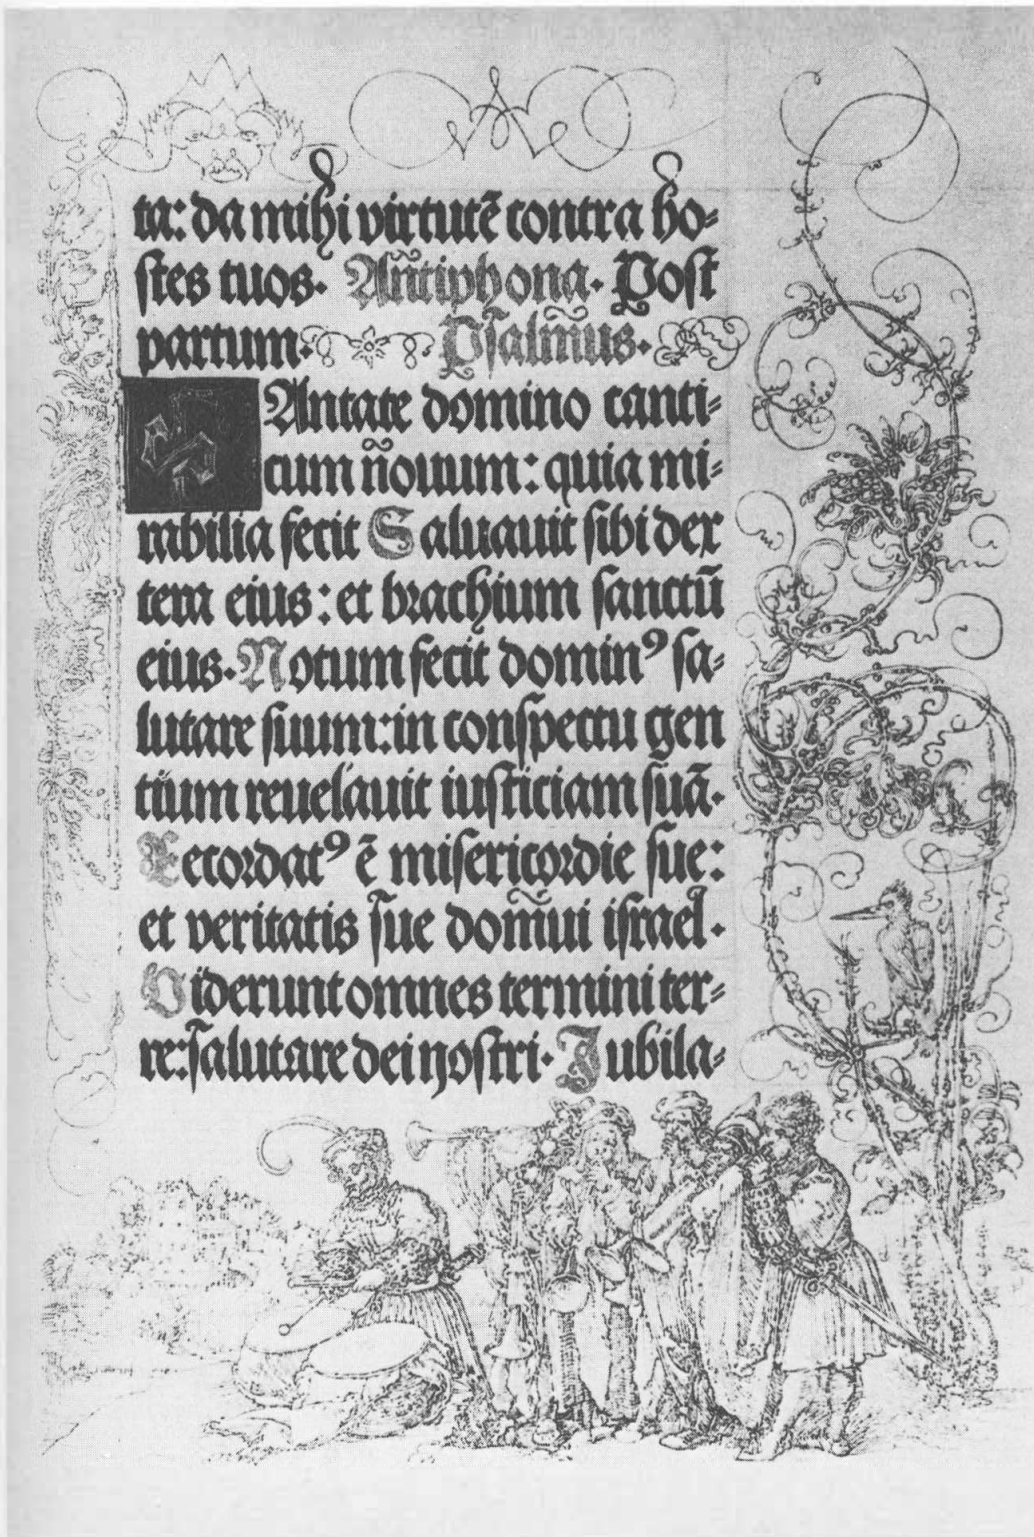 ta: da mihi virtutē contra ho-
stes tuos. Antiphona. Post
partum. Psalmus.
CAntate domino canti-
cum nouum: quia mi-
rabilia fecit Saluauit sibi dex
tera eius: et brachium sanctū
eius. Notum fecit dominꝰ sa-
lutare suum: in conspectu gen
tium reuelauit iusticiam suā.
Recordatꝰ ē misericordie sue:
et veritatis sue domui israel.
Viderunt omnes termini ter-
re: salutare dei nostri. Iubila-